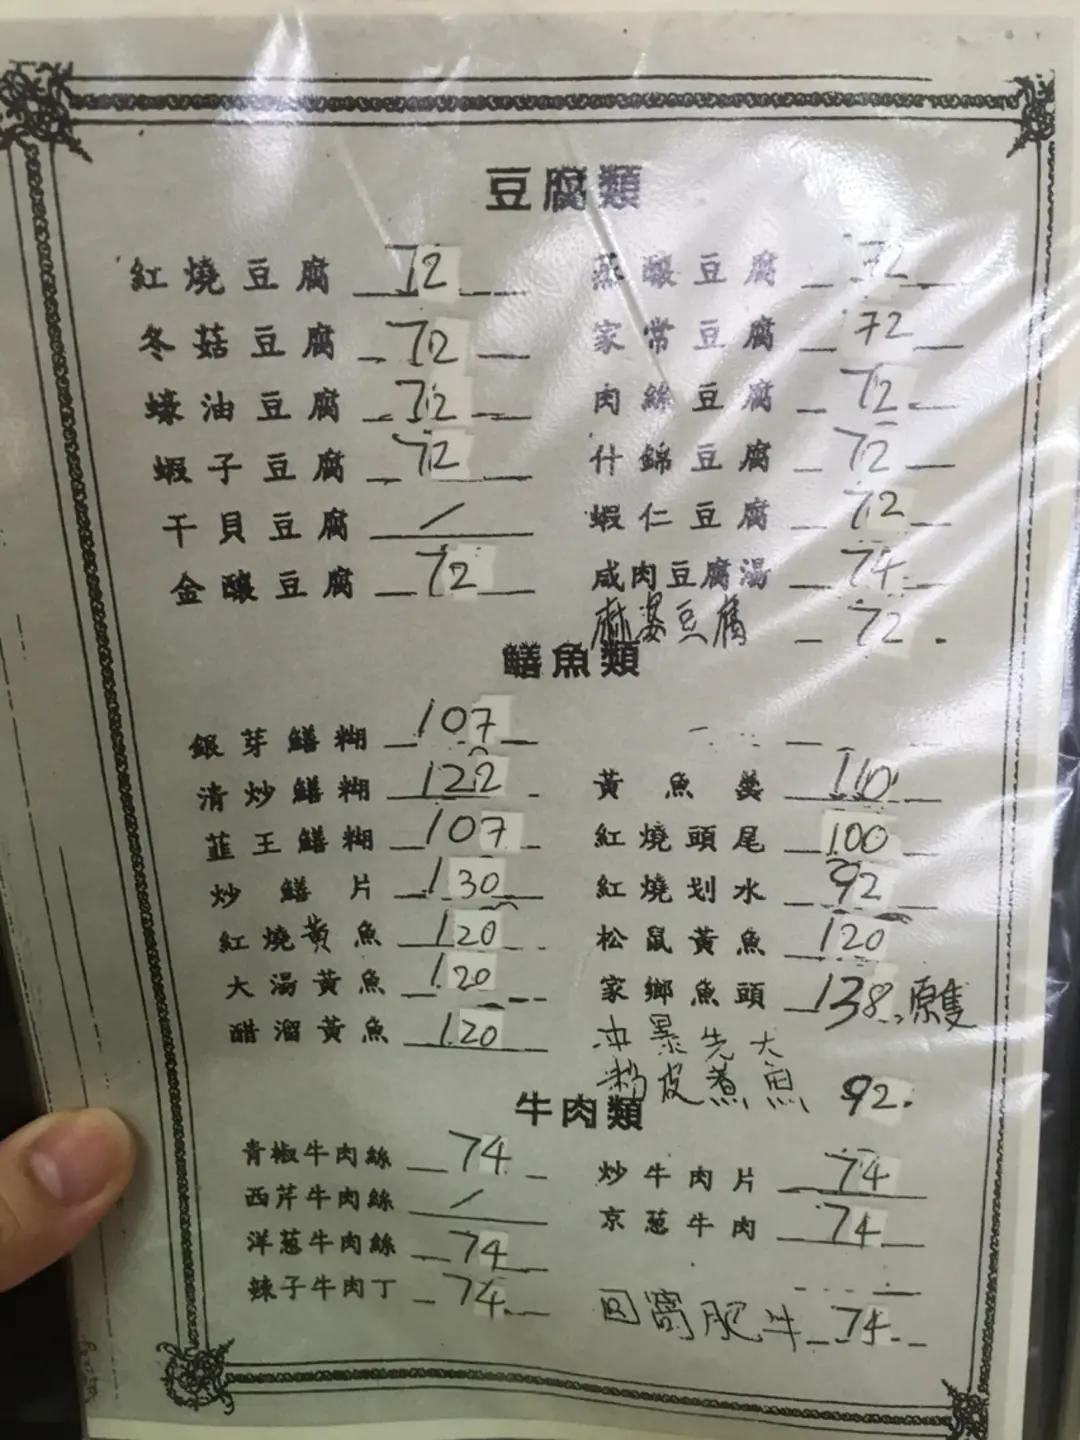 豆腐類
紅燒豆腐 72 蒸釀豆腐 72
冬菇豆腐 72 家常豆腐 72
蠔油豆腐 72 肉絲豆腐 72
蝦子豆腐 72 什錦豆腐 72
干貝豆腐 / 蝦仁豆腐 72
金釀豆腐 72 咸肉豆腐湯 74
麻婆豆腐 72
鱔魚類
銀芽鱔糊 107
清炒鱔糊 122 黃魚羹 110
韮王鱔糊 107 紅燒頭尾 100
炒鱔片 130 紅燒划水 92
紅燒黃魚 120 松鼠黃魚 120
大湯黃魚 120 家鄉魚頭 138 原隻
醋溜黃魚 120
皮煮魚 92
牛肉類
青椒牛肉絲 74 炒牛肉片 74
西芹牛肉絲 / 京葱牛肉 74
洋葱牛肉絲 74
辣子牛肉丁 74 回窩肥牛 74